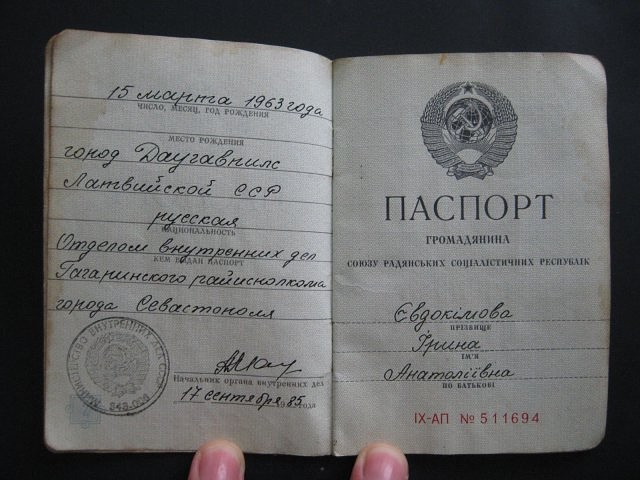 15 марта 1963 года
ЧИСЛО, МЕСЯЦ, ГОД РОЖДЕНИЯ
МЕСТО РОЖДЕНИЯ
город Даугавпилс
Латвийской ССР
русская
НАЦИОНАЛЬНОСТЬ
Отделом внутренних дел
КЕМ ВЫДАН ПАСПОРТ
Гагаринского райисполкома
города Севастополя
Начальник органа внутренних дел
17 сентября 1985 года
МИНИСТЕРСТВО ВНУТРЕННИХ ДЕЛ СССР
ПАСПОРТ
ГРОМАДЯНИНА
СОЮЗУ РАДЯНСЬКИХ СОЦІАЛІСТИЧНИХ РЕСПУБЛІК
Євдокімова
ПРІЗВИЩЕ
Ірина
ІМ'Я
Анатоліївна
ПО БАТЬКОВІ
IX-АП № 511694